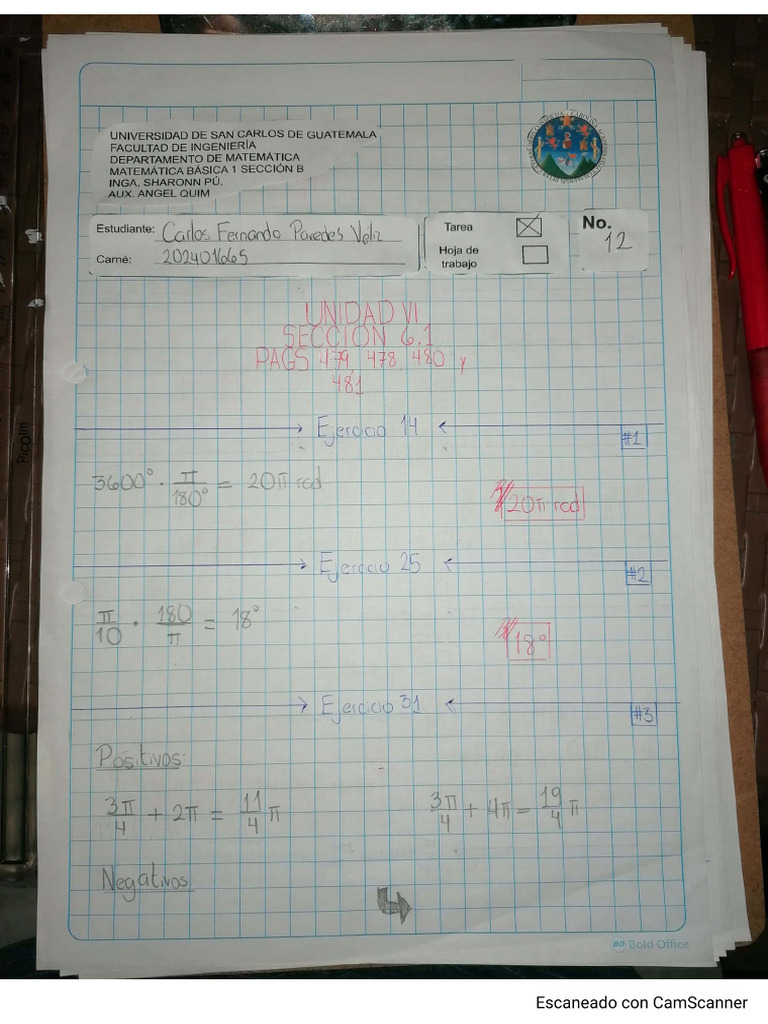 UNIVERSIDAD DE SAN CARLOS DE GUATEMALA
FACULTAD DE INGENIERÍA
DEPARTAMENTO DE MATEMÁTICA
MATEMÁTICA BÁSICA 1 SECCIÓN B
INGA. SHARONN PÚ.
AUX. ANGEL QUIM
Estudiante: Carlos Fernando Paredes Véliz
Carné: 202401665
Tarea
Hoja de
trabajo
No.
12
UNIDAD VI
SECCIÓN 6.1
PAGS 479, 478, 480 y
481
Ejercicio 14
#1
3600° · π/180° = 20π rad
20π rad
Ejercicio 25
#2
π/10 · 180/π = 18°
18°
Ejercicio 31
#3
Positivos:
3π/4 + 2π = 11/4 π
3π/4 + 4π = 19/4 π
Negativos:
Bold Office
Escaneado con CamScanner